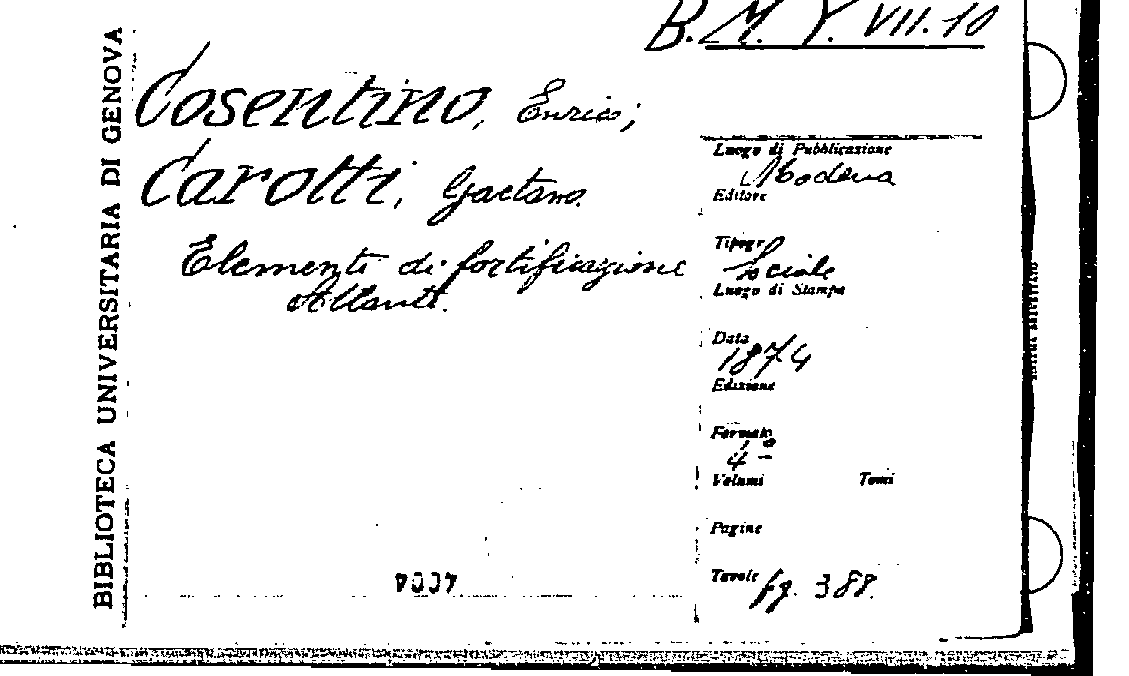 B. M. Y. VII. 10
BIBLIOTECA UNIVERSITARIA DI GENOVA
Cosentino, Enrico;
Carotti, Gaetano.
Elementi di fortificazione
Atlante.
Luogo di Pubblicazione
Modena
Editore
Tipogr
Sociale
Luogo di Stampa
Data
1874
Edizione
Formato
4º
Volumi Tomi
Pagine
Tavole fg. 388.